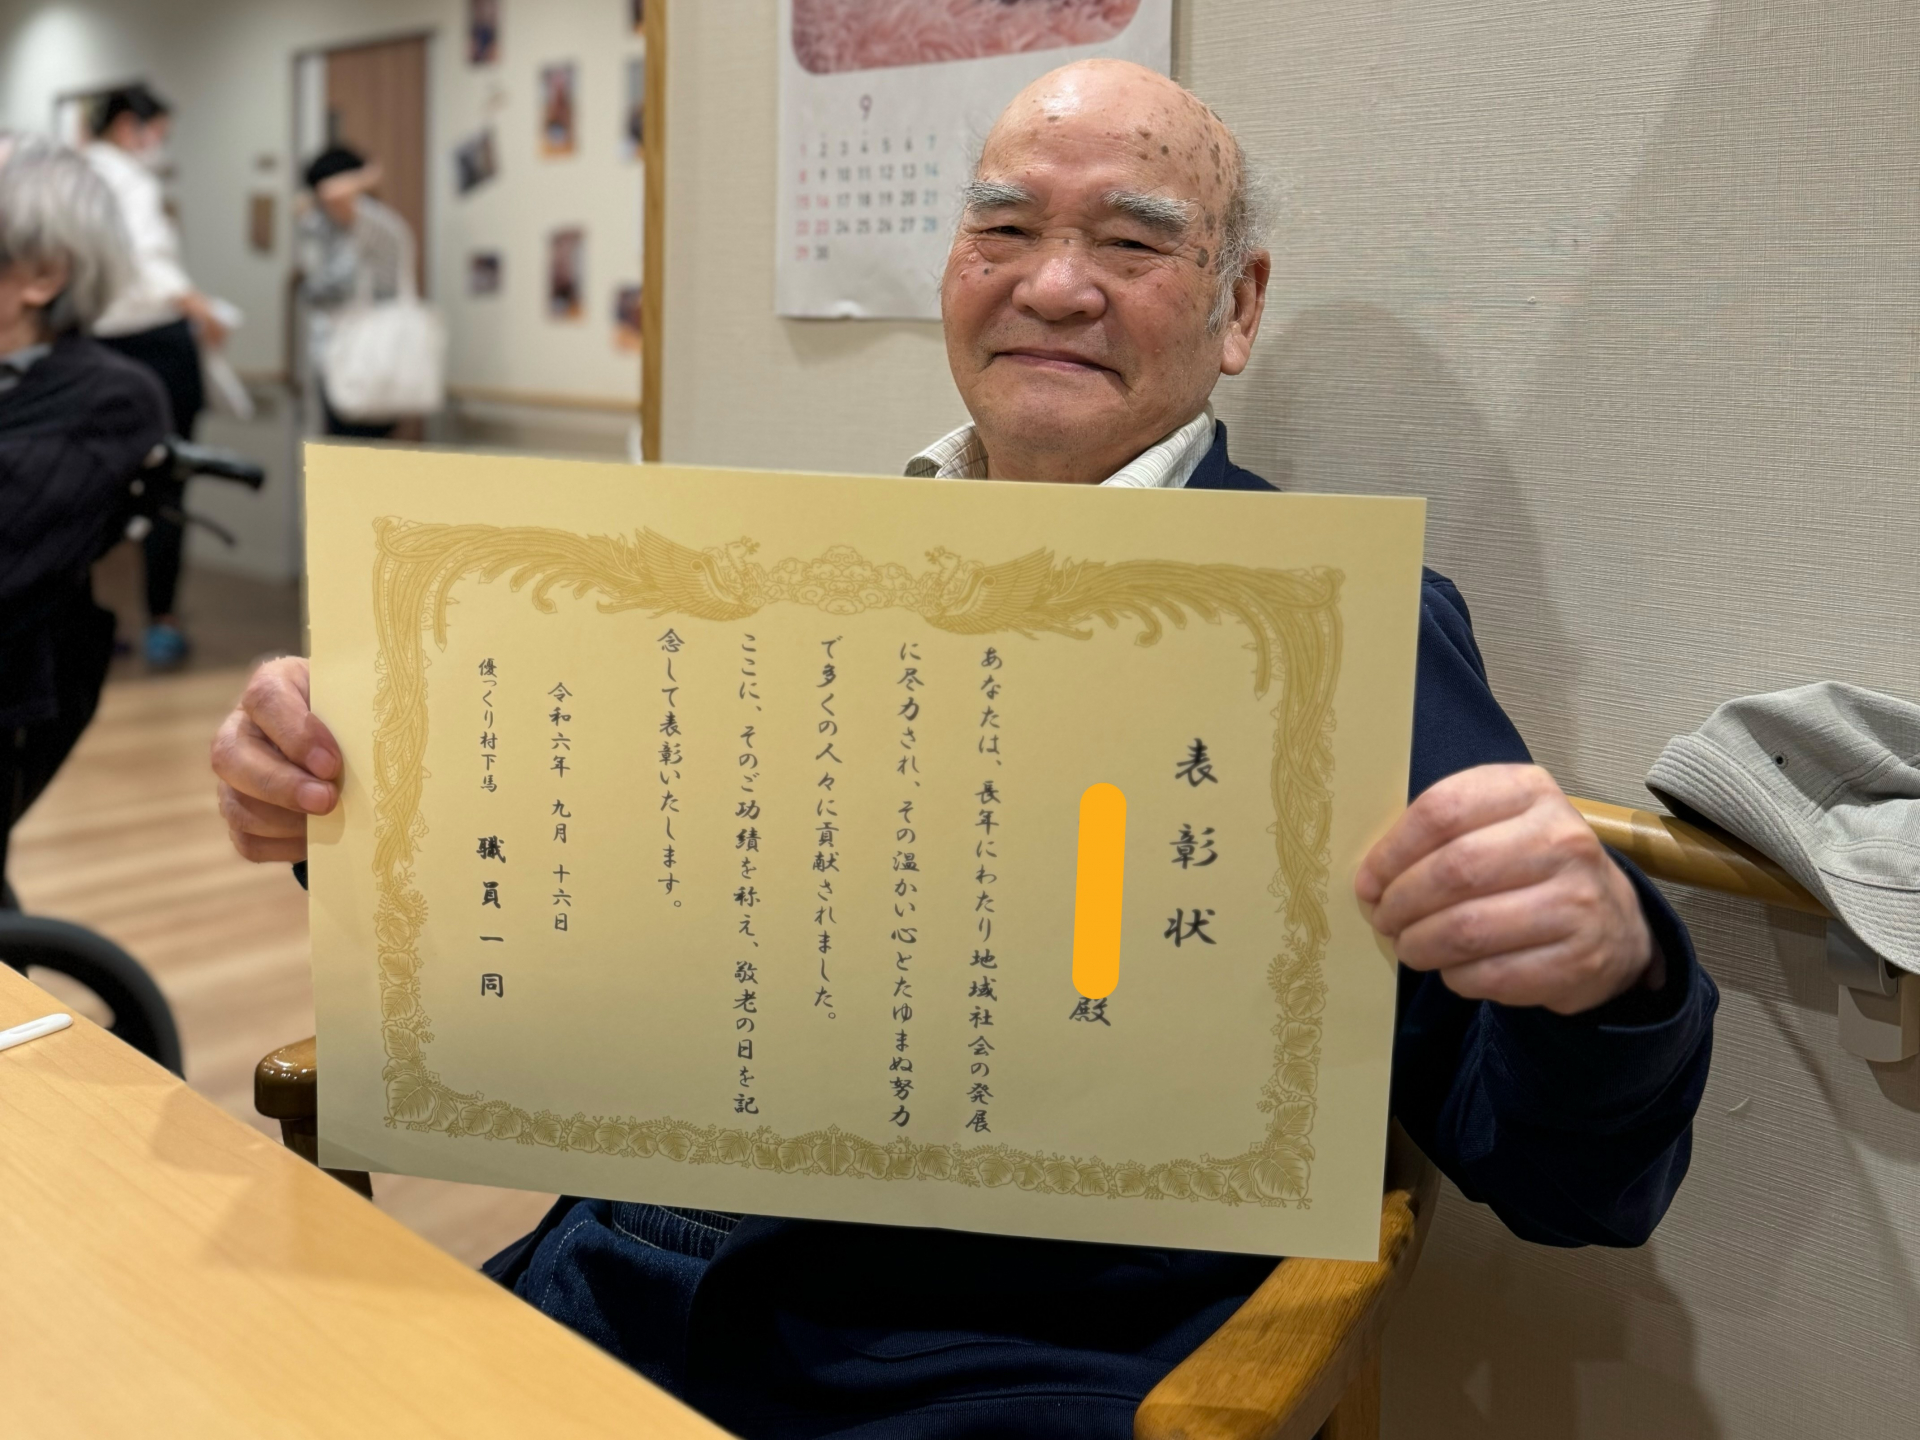 表彰状
殿
あなたは、長年にわたり地域社会の発展
に尽力され、その温かい心とたゆまぬ努力
で多くの人々に貢献されました。
ここに、そのご功績を称え、敬老の日を記
念して表彰いたします。
令和六年 九月 十六日
優っくり村下馬 職員一同
9
1 2 3 4 5 6 7
8 9 10 11 12 13 14
15 16 17 18 19 20 21
22 23 24 25 26 27 28
29 30